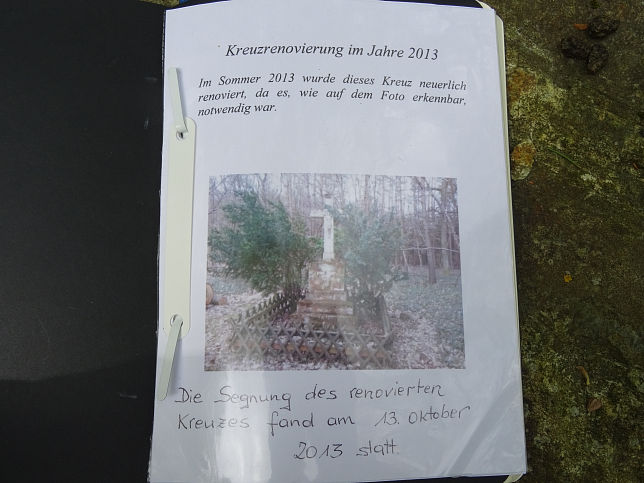 Kreuzrenovierung im Jahre 2013
Im Sommer 2013 wurde dieses Kreuz neuerlich
renoviert, da es, wie auf dem Foto erkennbar,
notwendig war.
Die Segnung des renovierten
Kreuzes fand am 13. Oktober
2013 statt.